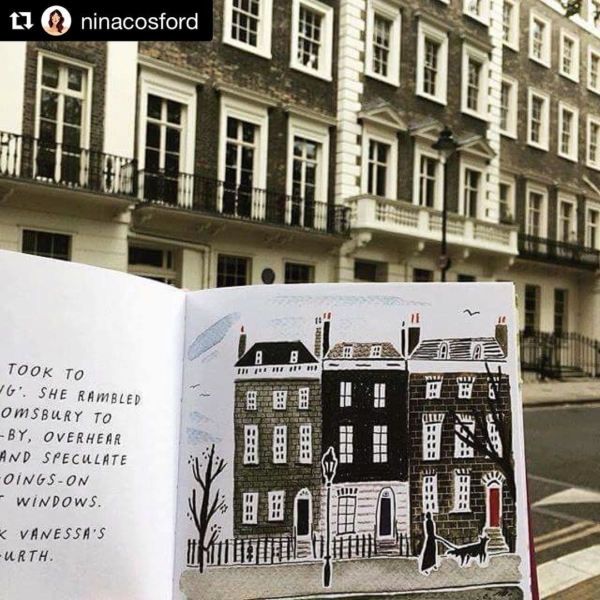 ninacosford
TOOK TO
NG'. SHE RAMBLED
OOMSBURY TO
-BY, OVERHEAR
AND SPECULATE
GOINGS-ON
T WINDOWS.
K VANESSA'S
OURTH.